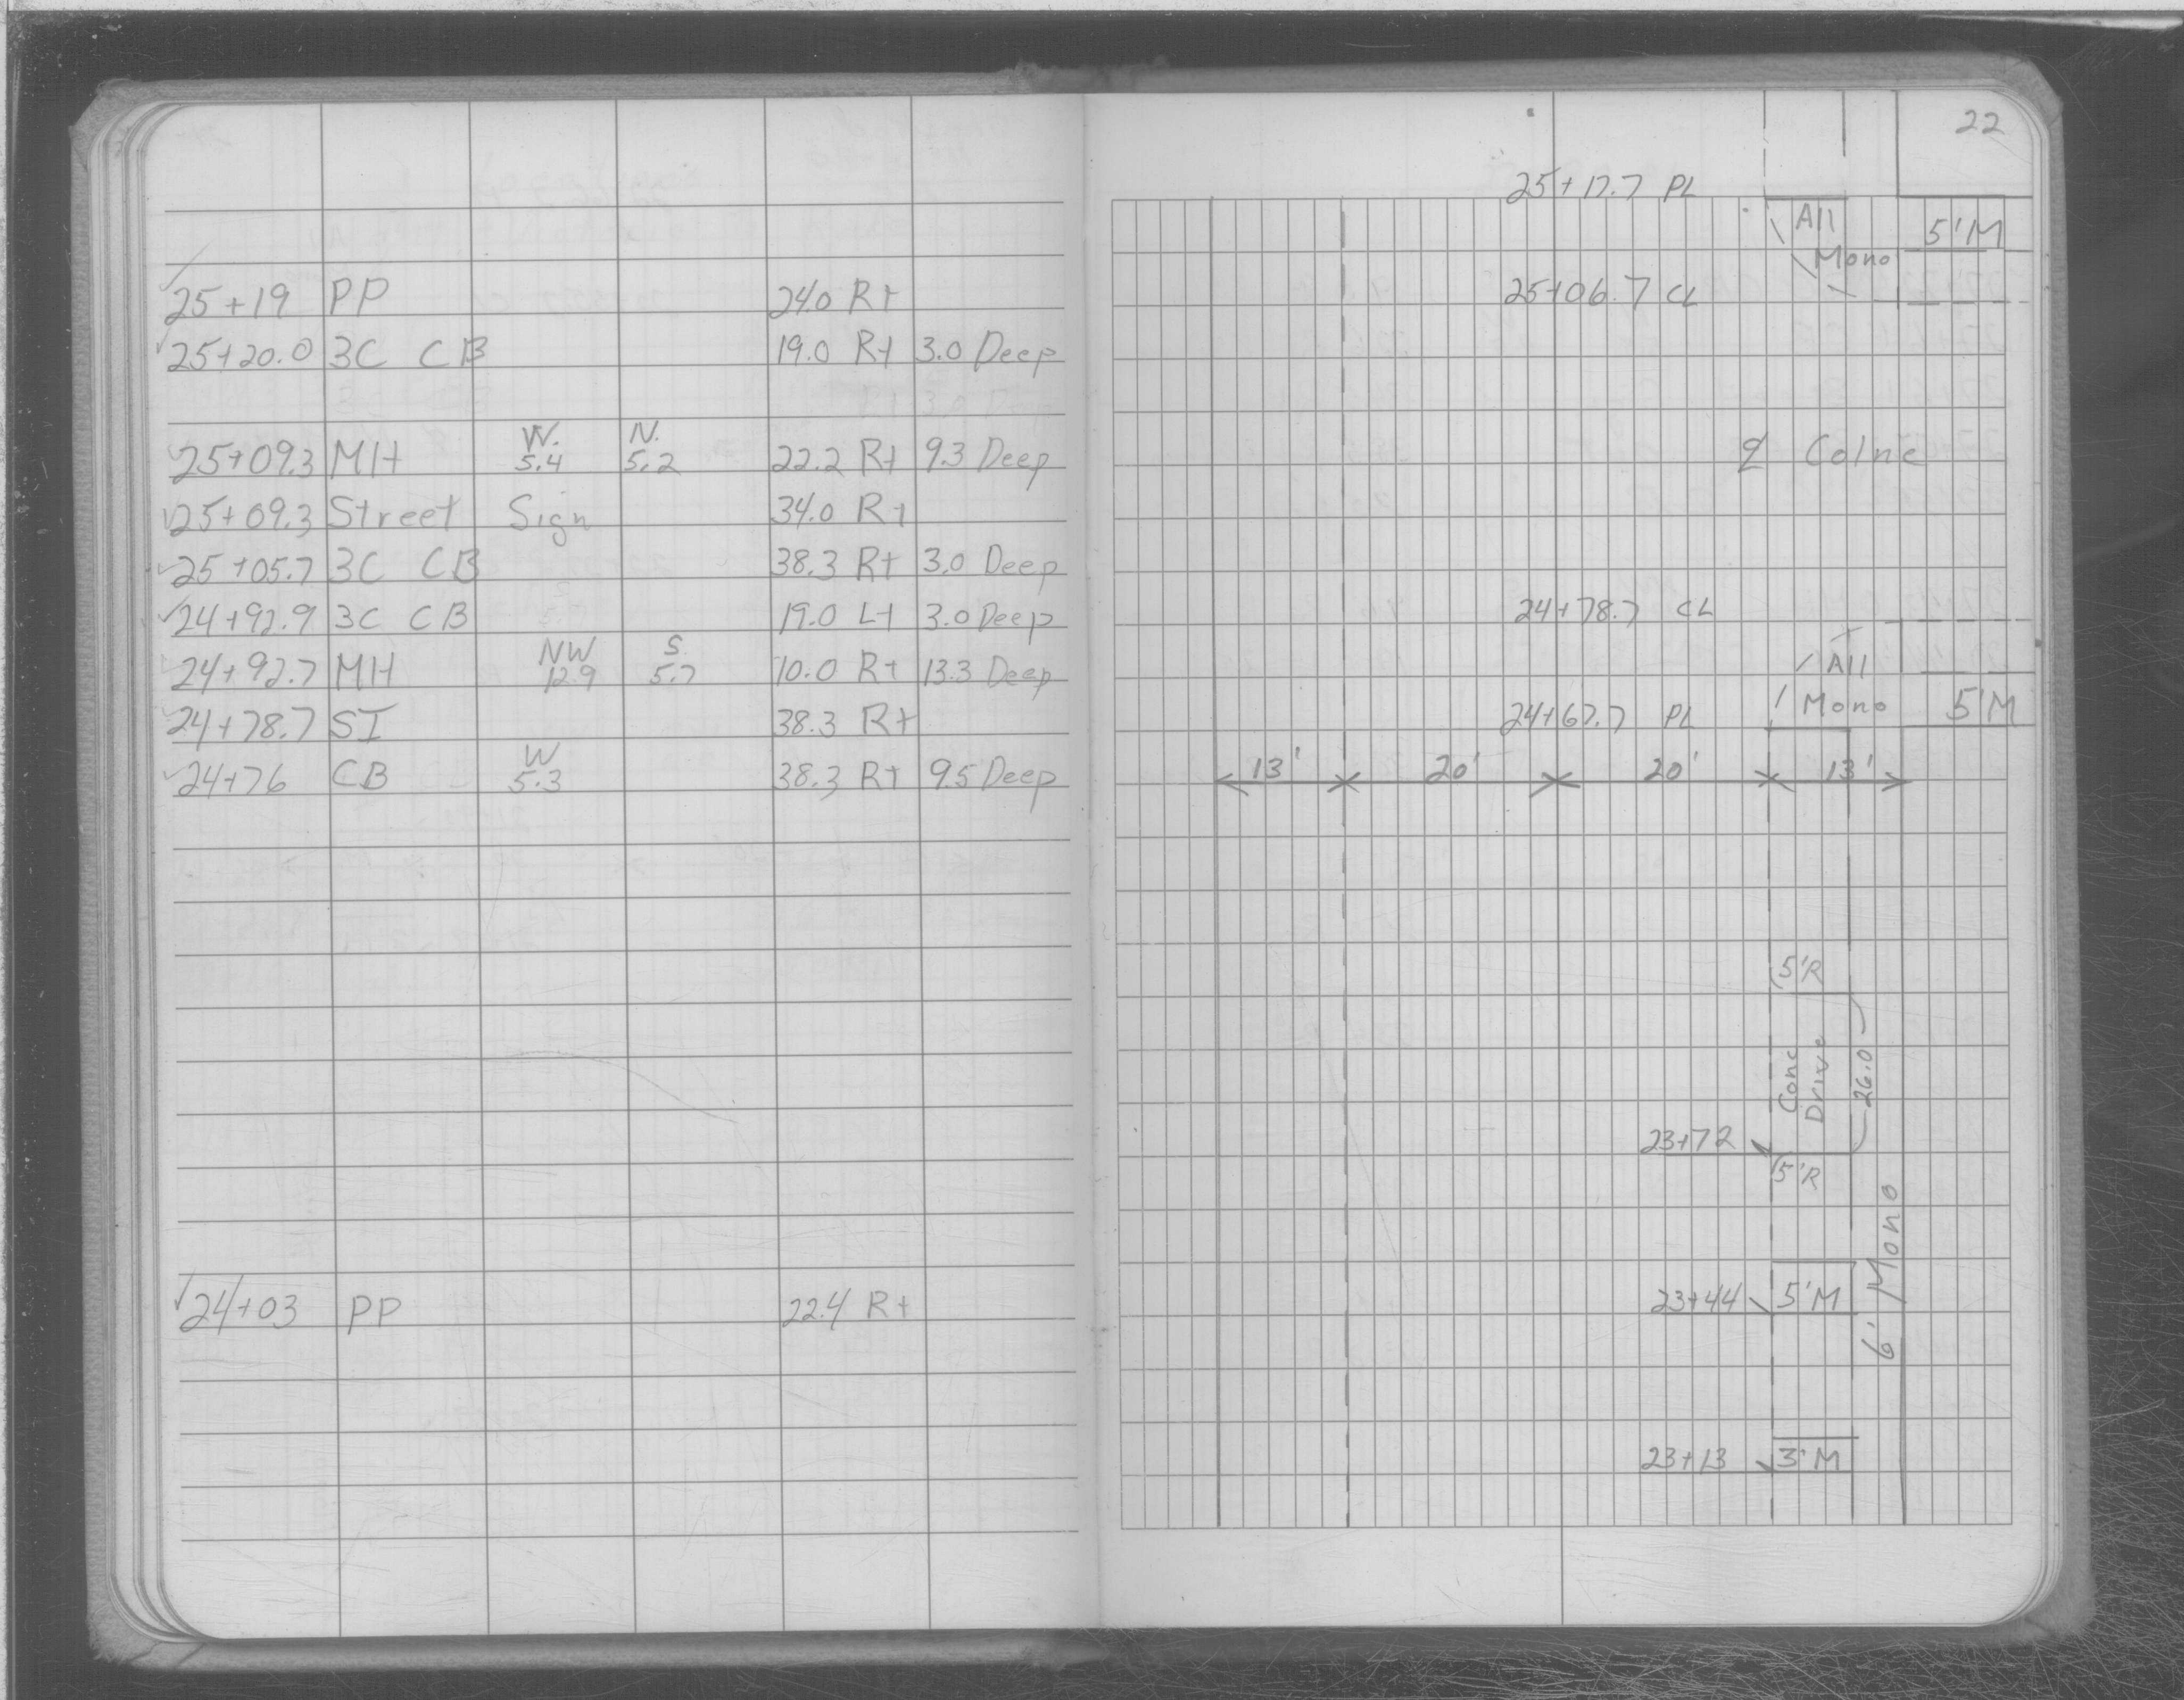 25+19 PP 24.0 Rt
25+20.0 3C CB 19.0 Rt 3.0 Deep
W. N.
25+09.3 MH 5.4 5.2 22.2 Rt 9.3 Deep
25+09.3 Street Sign 34.0 Rt
25+05.7 3C CB 38.3 Rt 3.0 Deep
24+92.9 3C CB 19.0 Lt 3.0 Deep
NW S.
24+92.7 MH 12.9 5.7 10.0 Rt 13.3 Deep
24+78.7 SI 38.3 Rt
W
24+76 CB 5.3 38.3 Rt 9.5 Deep
24+03 PP 22.4 Rt
22
25+17.7 PL
All
5'M
Mono
25+06.7 CL
℄ Colne
24+78.7 CL
All
24+67.7 PL Mono 5'M
13' 20' 20' 13'
5'R
Conc
Drive
26.0
23+72
5'R
6' Mono
23+44 5'M
23+13 3'M